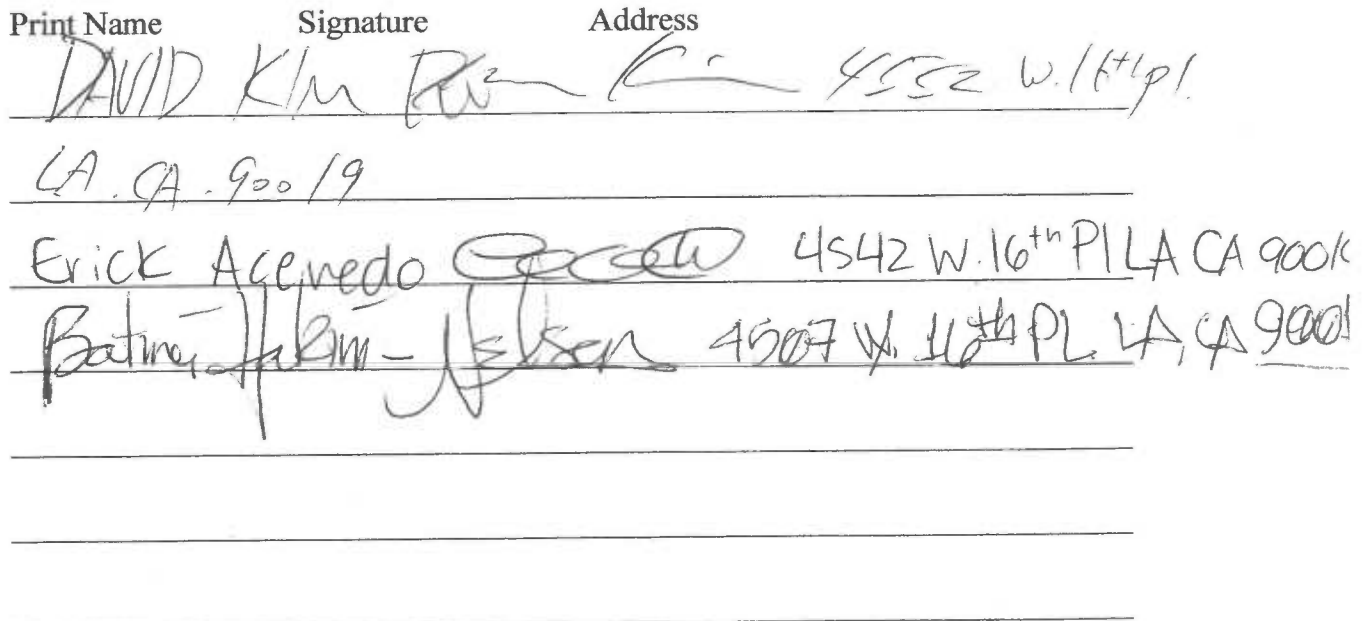 Print Name Signature Address
DAVID KIM 4552 W. 16th pl.
LA. CA. 90019
Erick Acevedo 4542 W. 16th Pl LA CA 900
Hakim-Nelsen 4507 W. 16th PL. LA, CA 900